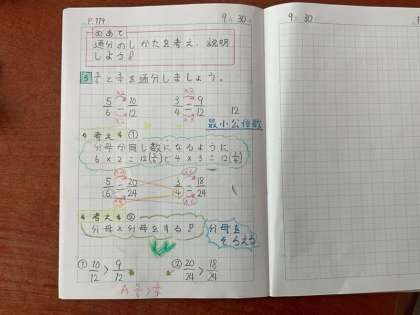 P.114
9/30
めあて
通分のしかたを考え、説明
しよう!
5 5/6と3/4を通分しましょう。
×2 ×3
5/6=10/12 3/4=9/12 12
×2 ×3
最小公倍数
考え①
分母が同じ数になるように
6×2=12 4×3=12
5/6=20/24 3/4=18/24
考え②
分母×分母をする!
分母を
そろえる
① 10/12>9/12 ② 20/24>18/24
9 30